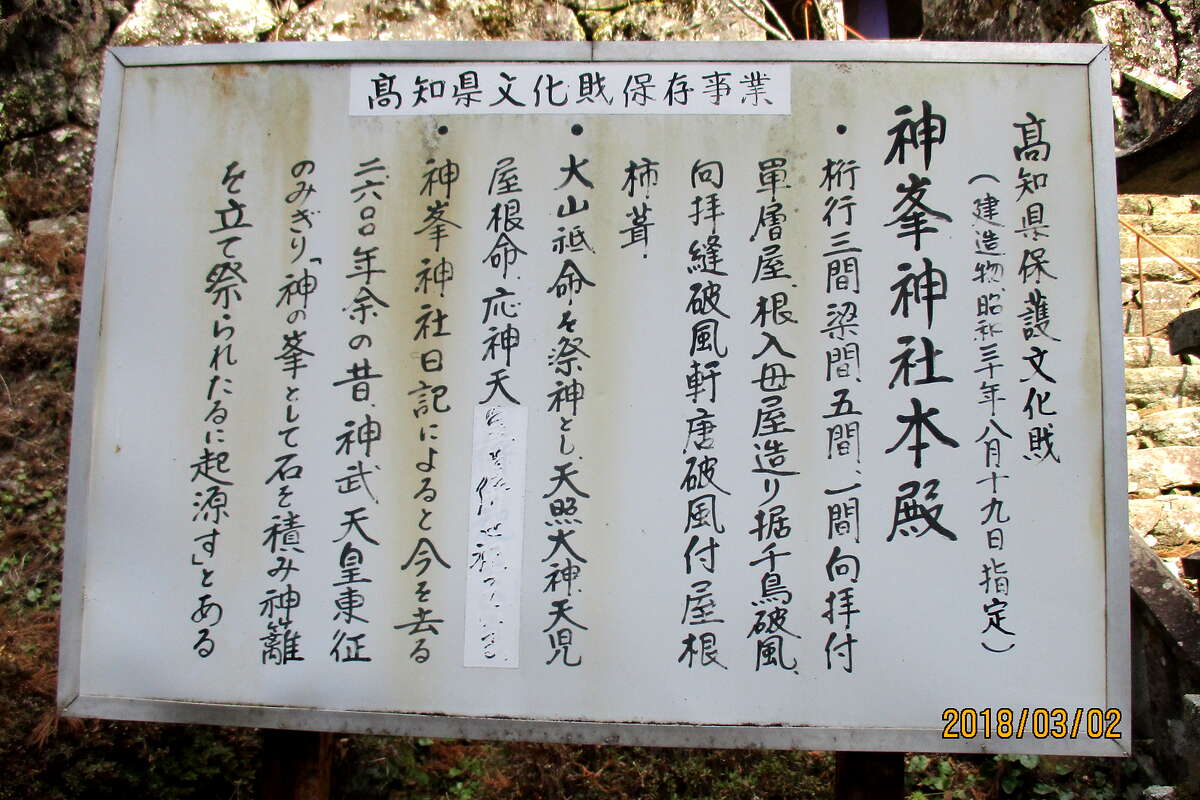 高知県文化財保存事業
高知県保護文化財
(建造物昭和三十年八月十九日指定)
神峯神社本殿
・桁行三間梁間、五間、一間向拝付
単層屋根入母屋造り据千鳥破風、
向拝縫破風軒唐破風付屋根
柿葺.
・大山祇命を祭神とし、天照大神、天児
屋根命、応神天
・神峯神社日記によると今を去る
二、六〇〇年余の昔、神武天皇東征
のみぎり「神の峯として石を積み神籬
を立て祭られたるに起源す」とある
2018/03/02